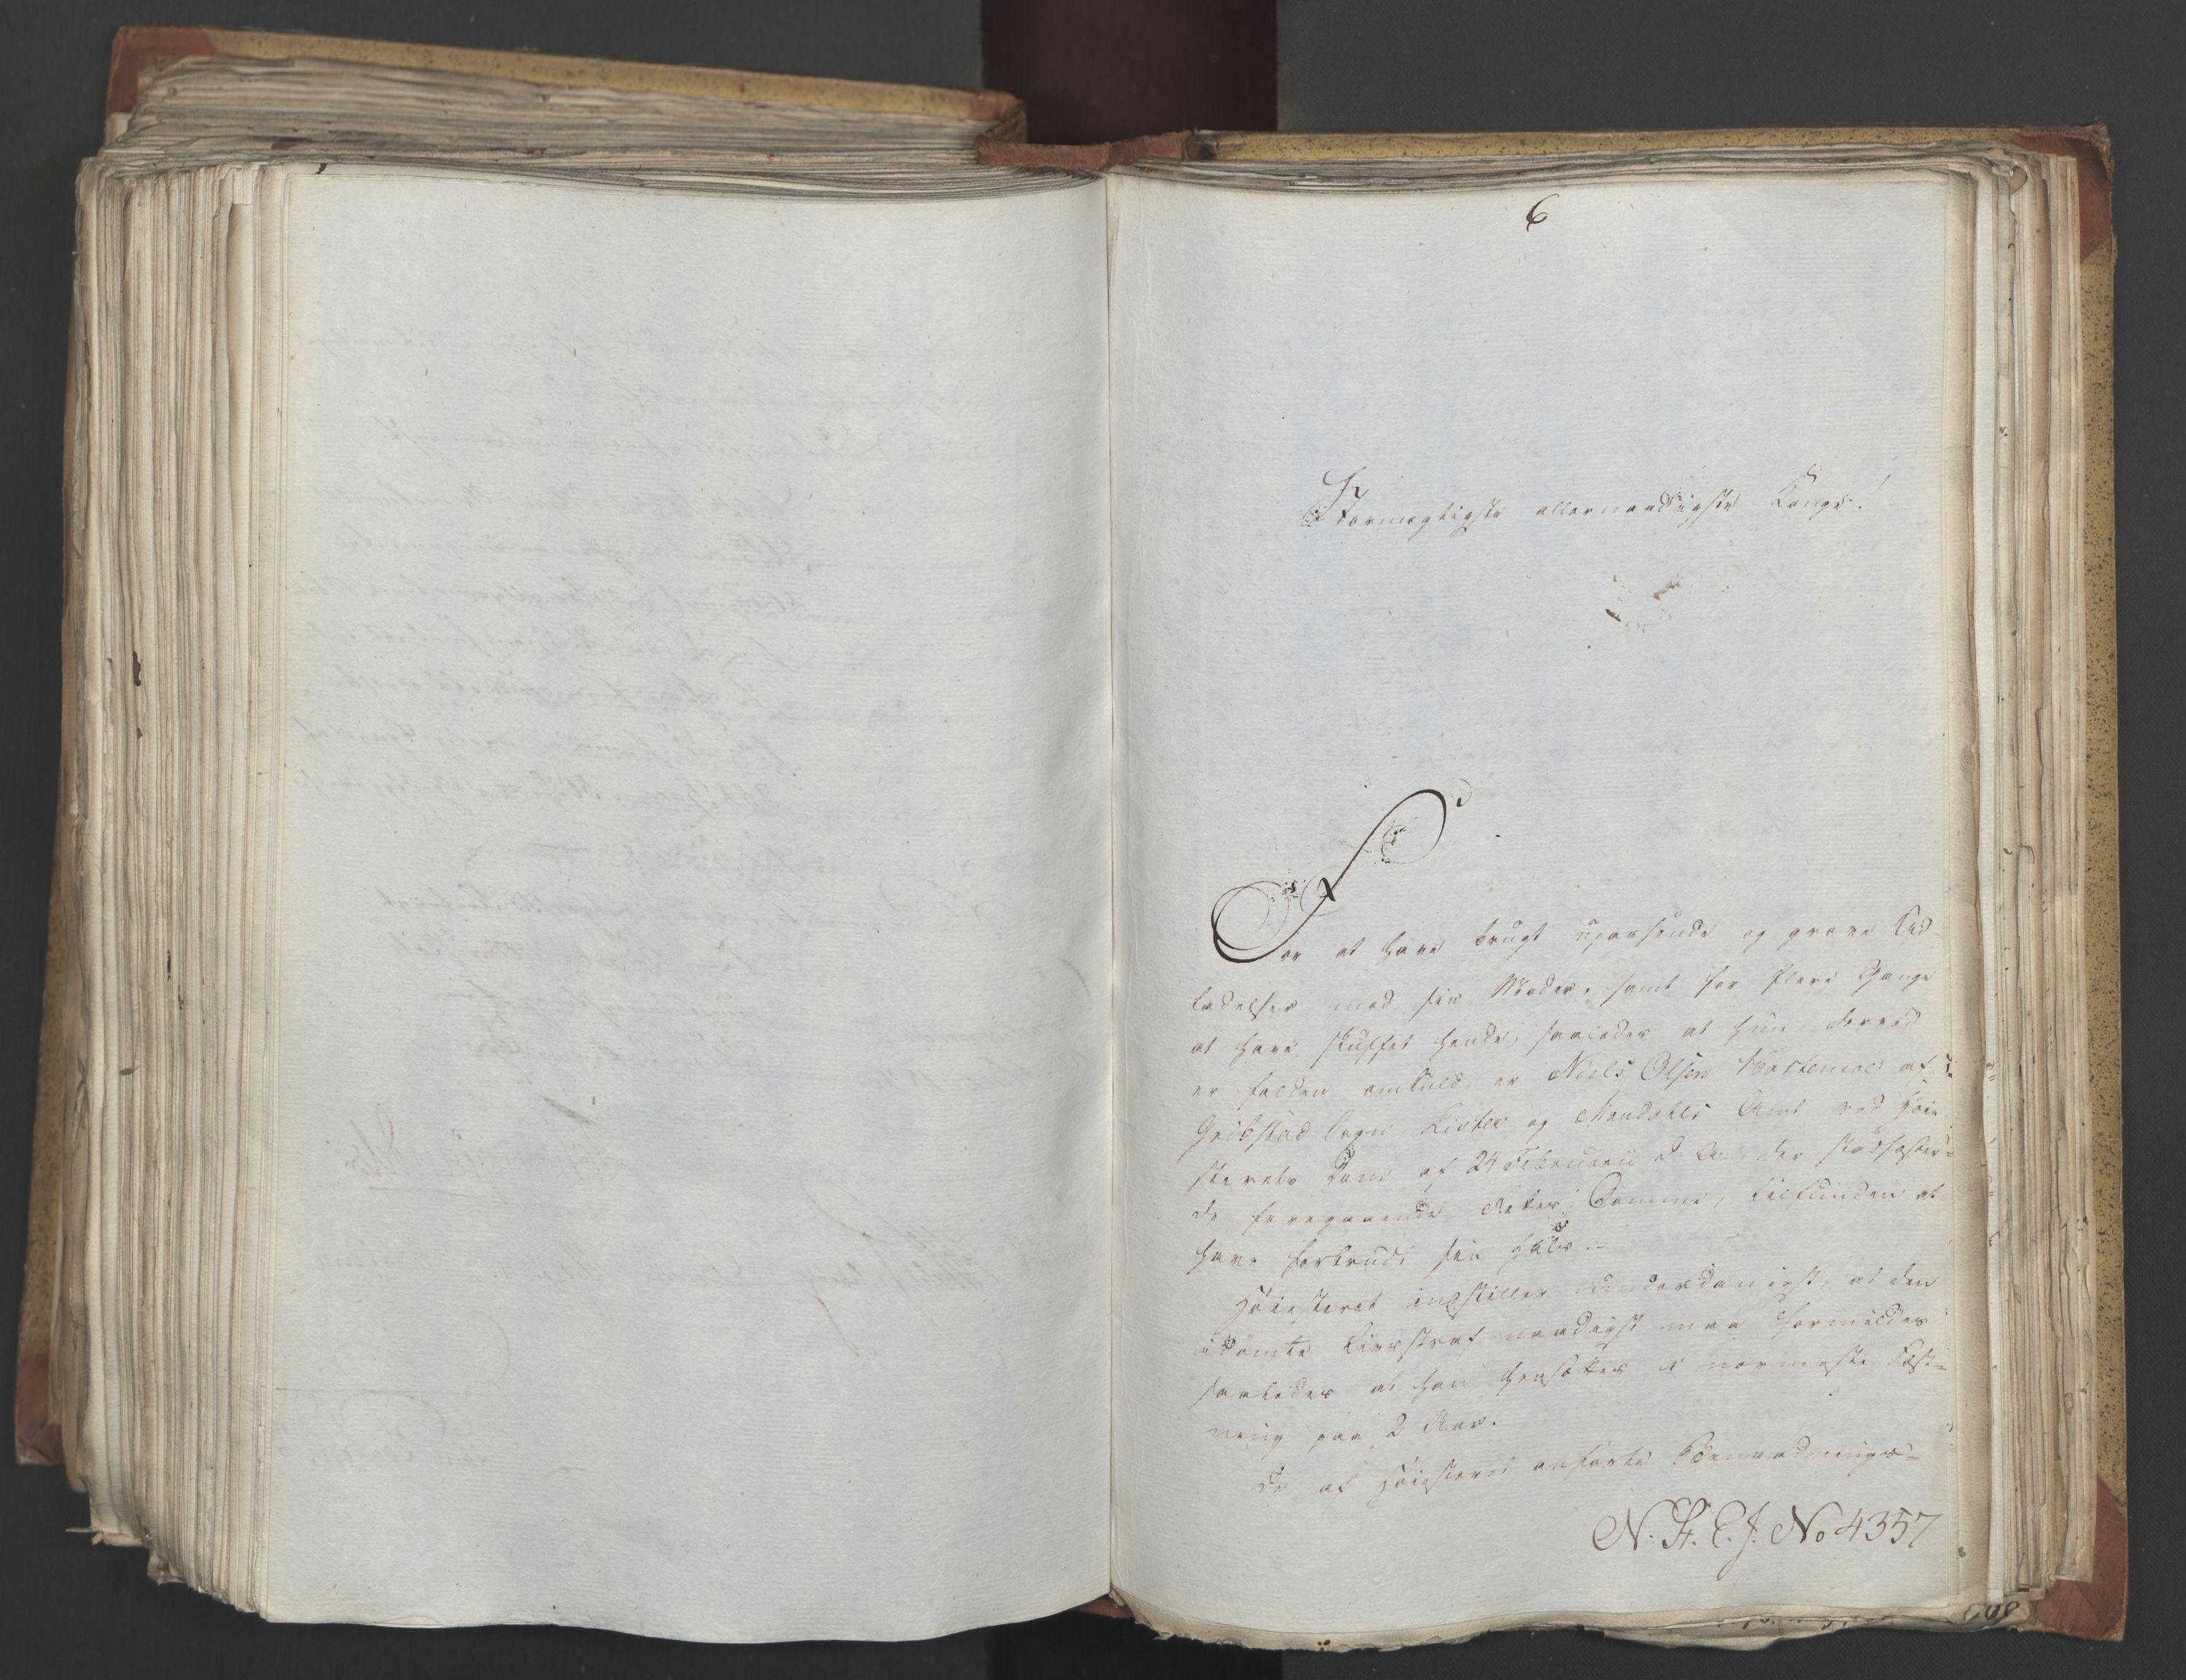 6
Stormægtigste allernaadigste Konge!
For at have brugt upassende og grove Ud-
ladelser mod sin Moder, samt for flere Gange
at have skuffet hende, saaledes at hun derved
er falden omkuld, er Niels Olsen af
Greibstad Sogn Lister og Mandahls Amt ved Høie
sterets Dom af 24 Februarii d. A. der stadfæster-
de foregaaende Retters Domme, tilfunden at
have forbrudt sin Hals.
Høiesteret indstiller underdanigst, at den
idømte Livsstraf naadigst maa formildes
saaledes at han hensættes i nærmeste Fæst-
ning paa 2 Aar.
De af Høiesteret anførte Benaadnings-
N. St. E. J. No 4357